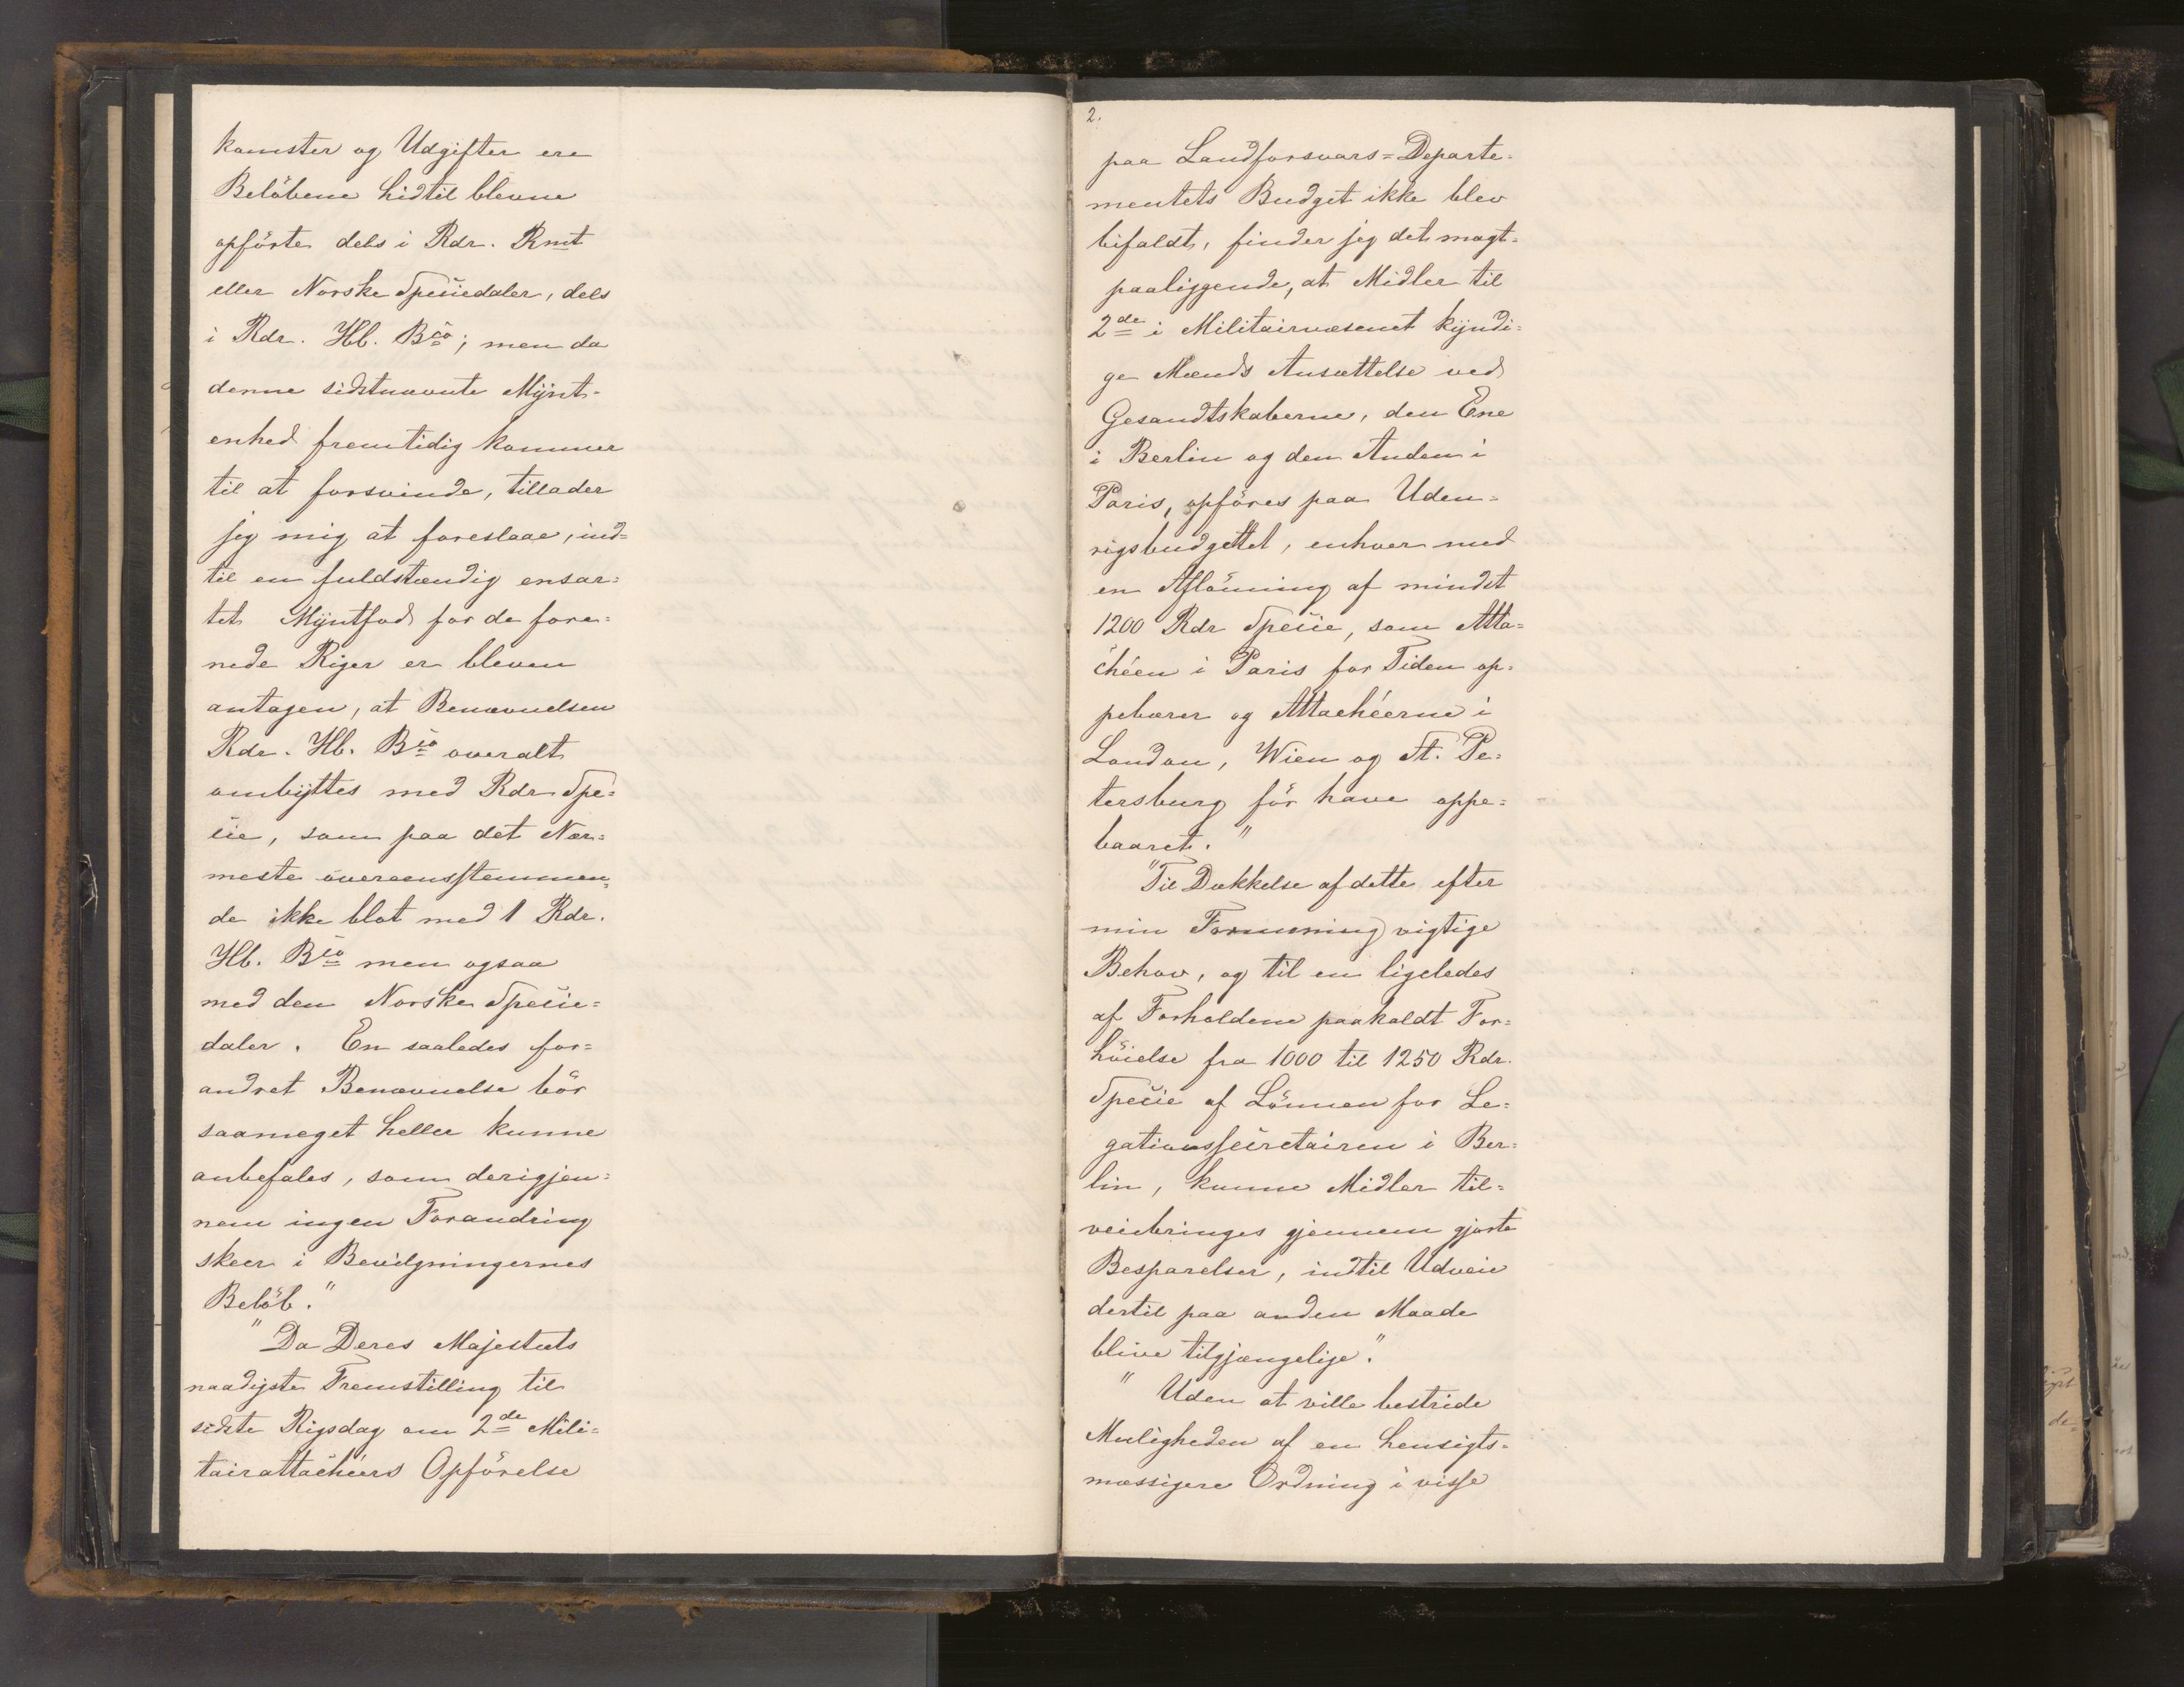 komster og Udgifter ere
Beløbene hidtil blevne
opförte dels i Rdr. Rmt
eller Norske Speciedaler, dels
i Rdr. Hb. Bco; men da
denne sidstnævnte Mÿnt-
enhed fremtidig kommer
til at forsvinde, tillader
jeg mig at foreslaae, ind=
til en fuldstændig ensar=
tet Mÿntfod for de fore=
nede Riger er bleven
antagen, at Benævnelsen
Rdr. Hb. Bco overalt
ombÿttes med Rdr Spe=
cie, som paa det Nær=
meste övereensstemmen=
de ikke blot med 1 Rdr.
Hb. Bco men ogsaa
med den Norske Specie=
daler. En saaledes for=
andret Benævnelse bör
saameget heller kunne
anbefales, som derigjen=
nem ingen Forandring
skeer i Bevilgningernes
Belöb."
"Da Deres Majestæts
naadigste Fremstilling til
sidste Rigsdag om 2de Mili=
tairattachéers Opförelse
2.
paa Landforsvars=Departe=
mentets Budget ikke blev
bifaldt, finder jeg det magt=
paaliggende, at Midler til
2de i Militairvæsenet kÿndi=
ge Mænds Ansættelse ved
Gesandtskaberne, den Ene
i Berlin og den Anden i
Paris, opföres paa Uden=
rigsbudgettet, enhver med
en Aflönning af mindst
1200 Rdr Specie, som Atta=
chéen i Paris for Tiden op=
pebærer og Attachéerne i
London, Wien og St. Pe=
tersburg för have oppe=
baaret."
"Til Dækkelse af dette efter
min Formening vigtige
Behov, og til en ligeledes
af Forholdene paakaldt For=
höielse fra 1000 til 1250 Rdr.
Specie af Lönnen for Le=
gationssecretairen i Ber=
lin, kunne Midler til=
veiebringes gjennem gjorte
Besparelser, indtil Udveie
dertil paa anden Maade
blive tilgjængelige."
"Uden at ville bestride
Muligheden af en hensigts=
mæssigere Ordning i visse